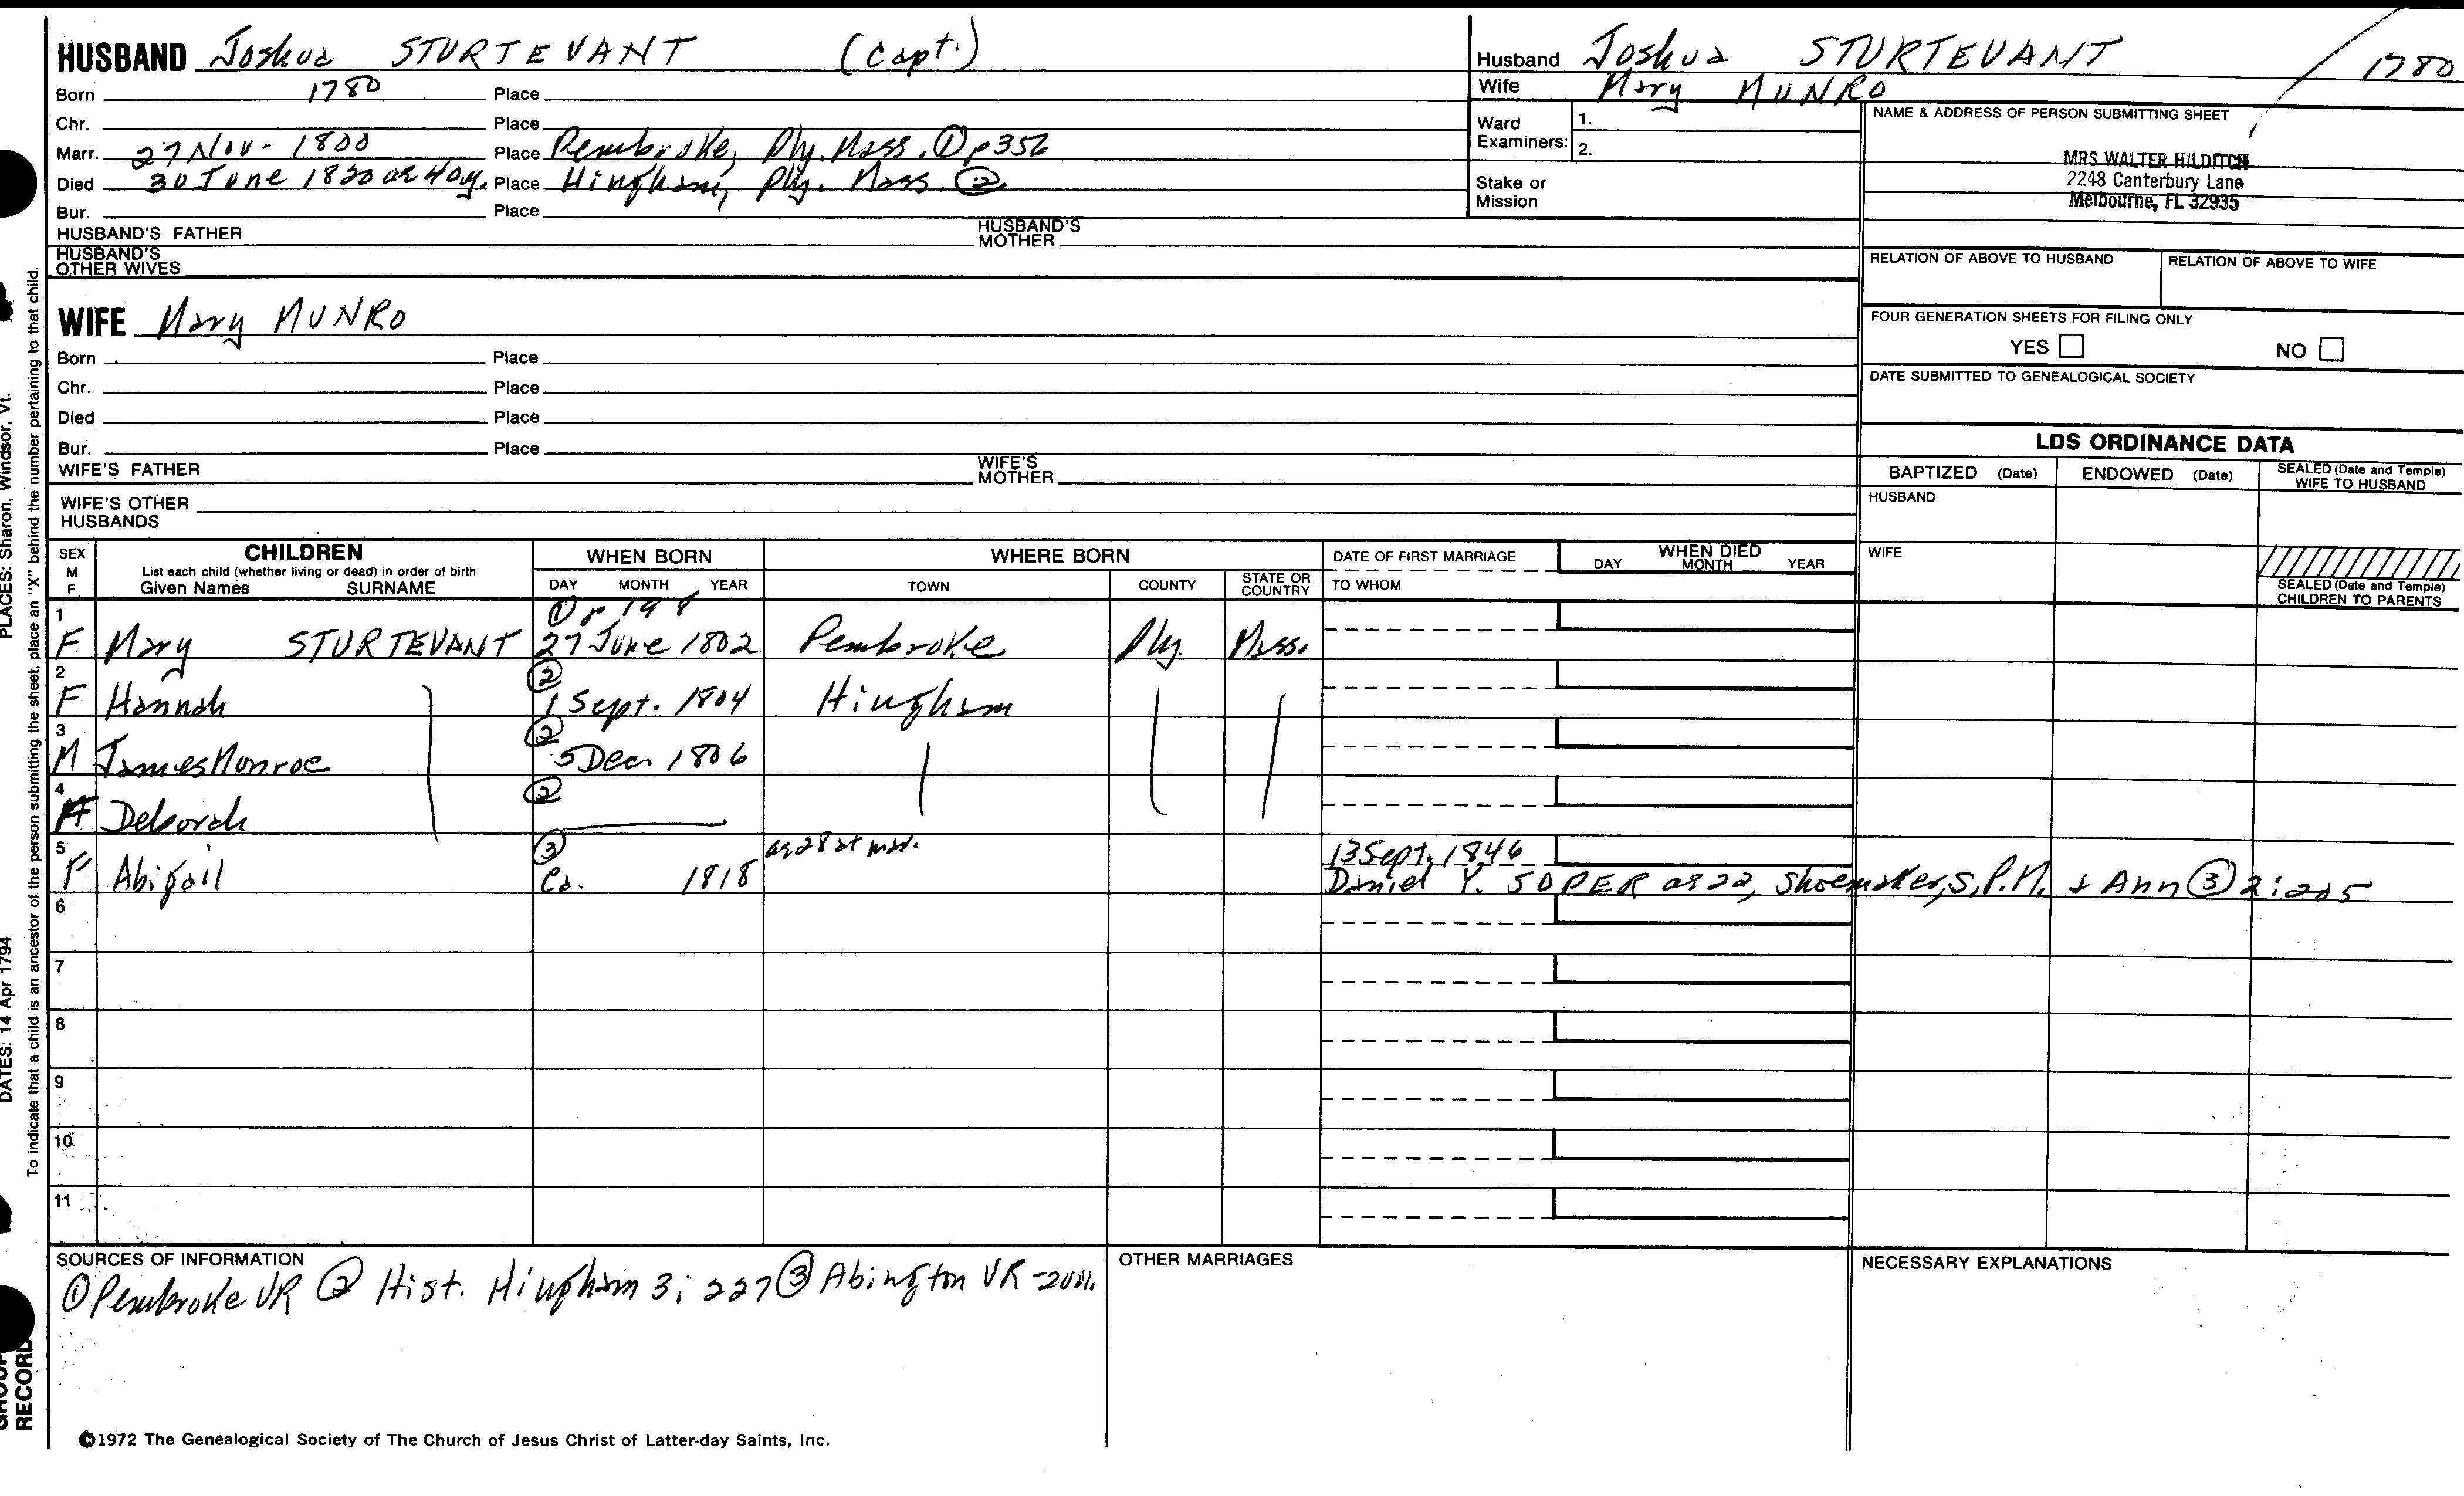 HUSBAND Joshua STURTEVANT (Capt.)
Born 1780 Place
Chr. Place
Marr. 27 Nov - 1800 Place Pembroke, Ply. Mass. ① p 356
Died 30 June 1820 ae 40 y. Place Hingham, Ply. Mass. ②
Bur. Place
HUSBAND'S FATHER HUSBAND'S MOTHER
HUSBAND'S OTHER WIVES
WIFE Mary MUNRO
Born Place
Chr. Place
Died Place
Bur. Place
WIFE'S FATHER WIFE'S MOTHER
WIFE'S OTHER HUSBANDS
Husband Joshua STURTEVANT / 1780
Wife Mary MUNRO
Ward Examiners: 1.
2.
Stake or Mission
NAME & ADDRESS OF PERSON SUBMITTING SHEET
MRS WALTER HILDITCH
2248 Canterbury Lane
Melbourne, FL 32935
RELATION OF ABOVE TO HUSBAND RELATION OF ABOVE TO WIFE
FOUR GENERATION SHEETS FOR FILING ONLY
YES NO
DATE SUBMITTED TO GENEALOGICAL SOCIETY
LDS ORDINANCE DATA
BAPTIZED (Date) ENDOWED (Date) SEALED (Date and Temple) WIFE TO HUSBAND
HUSBAND
WIFE
SEALED (Date and Temple) CHILDREN TO PARENTS
SEX M F CHILDREN WHEN BORN WHERE BORN DATE OF FIRST MARRIAGE WHEN DIED
List each child (whether living or dead) in order of birth
Given Names SURNAME DAY MONTH YEAR TOWN COUNTY STATE OR COUNTRY TO WHOM DAY MONTH YEAR
① p 198
1 F Mary STURTEVANT 27 June 1802 Pembroke Ply. Mass.
2 F Hannah ② 1 Sept. 1804 Hingham
3 M James Monroe ② 5 Dec 1806
4 F Deborah ②
5 F Abigail ③ Ca. 1818 ae 28 at mar. 13 Sept. 1846
Daniel Y. SOPER ae 22, Shoemaker, S, P.M. & Ann ③ 2:205
6
7
8
9
10
11
SOURCES OF INFORMATION
① Pembroke VR ② Hist. Hingham 3: 227 ③ Abington VR
OTHER MARRIAGES
NECESSARY EXPLANATIONS
©1972 The Genealogical Society of The Church of Jesus Christ of Latter-day Saints, Inc.
PLACES: Sharon, Windsor, Vt.
DATES: 14 Apr 1794
To indicate that a child is an ancestor of the person submitting the sheet, place an "X" behind the number pertaining to that child.
GROUP
RECORD